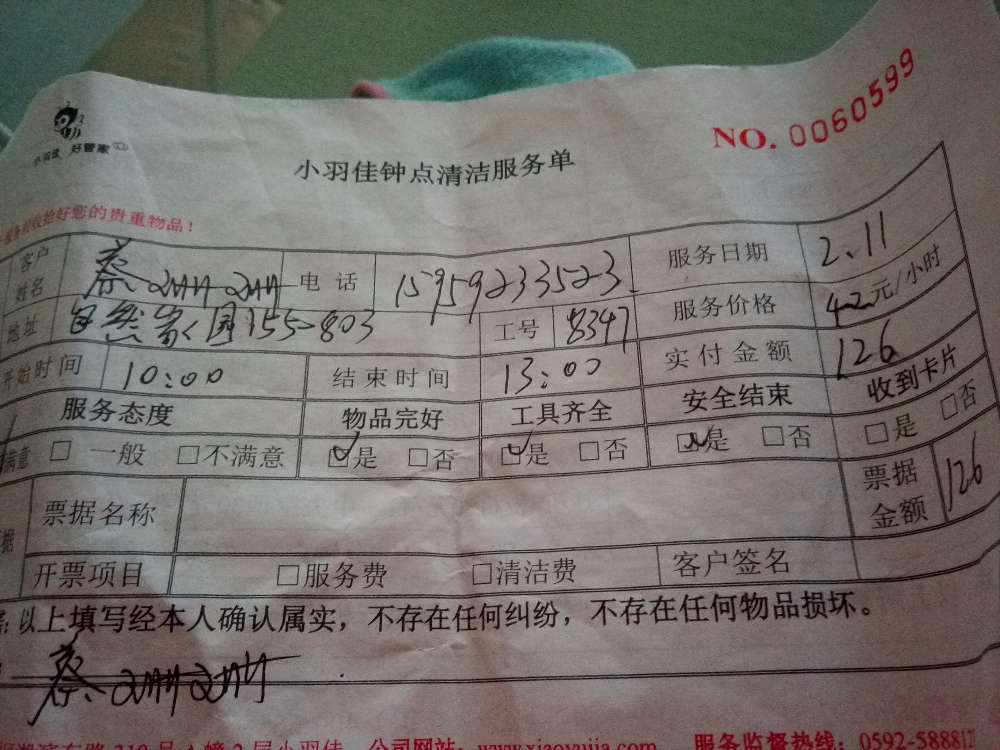 小羽佳 好管家
NO. 0060599
小羽佳钟点清洁服务单
收拾好您的贵重物品!
客户姓名 蔡珊珊 电话 15959233523 服务日期 2.11
地址 自然家园155-803 工号 8347 服务价格 42元/小时
开始时间 10:00 结束时间 13:00 实付金额 126
服务态度 物品完好 工具齐全 安全结束 收到卡片
满意 □ 一般 □不满意 ☑是 □否 ☑是 □否 ☑是 □否 □是 □否
票据名称 票据金额 126
开票项目 □服务费 □清洁费 客户签名
以上填写经本人确认属实,不存在任何纠纷,不存在任何物品损坏。
蔡珊珊
公司网站:www.xiaoyujia.com 服务监督热线:0592-588817